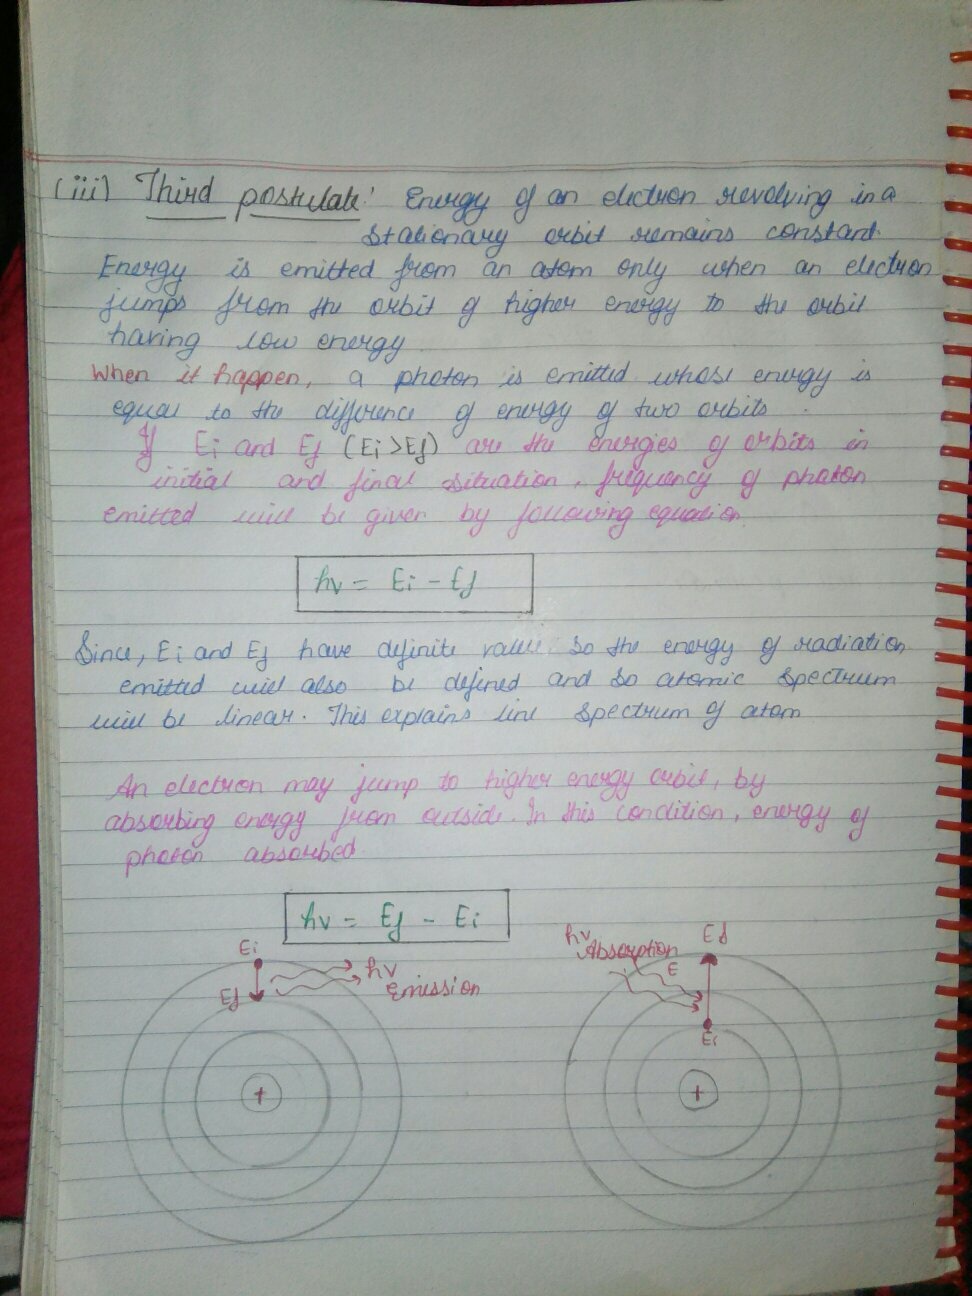 (iii) Third postulate: Energy of an electron revolving in a
stationary orbit remains constant.
Energy is emitted from an atom only when an electron
jumps from the orbit of higher energy to the orbit
having low energy
When it happen, a photon is emitted whose energy is
equal to the difference of energy of two orbits.
If Ei and Ef (Ei>Ef) are the energies of orbits in
initial and final situation, frequency of photon
emitted will be given by following equation
hν = Ei - Ef
Since, Ei and Ef have definite value, so the energy of radiation
emitted will also be defined and so atomic spectrum
will be linear. This explains line spectrum of atom
An electron may jump to higher energy orbit, by
absorbing energy from outside. In this condition, energy of
photon absorbed
hν = Ef - Ei
Ei
Ef
hν
Emission
+
hν
Absorption
E
Ef
Ei
+